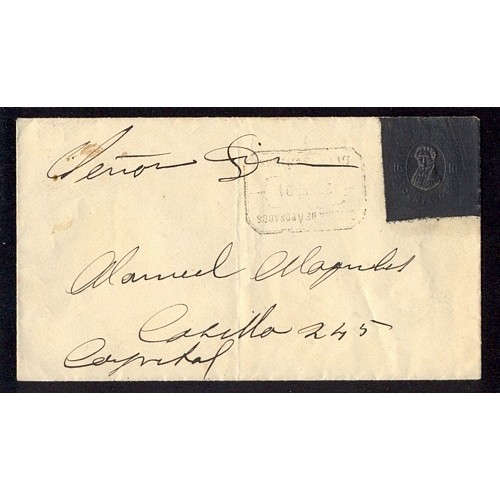 Señor Don
Manuel Magnles
Casilla 245
Capital